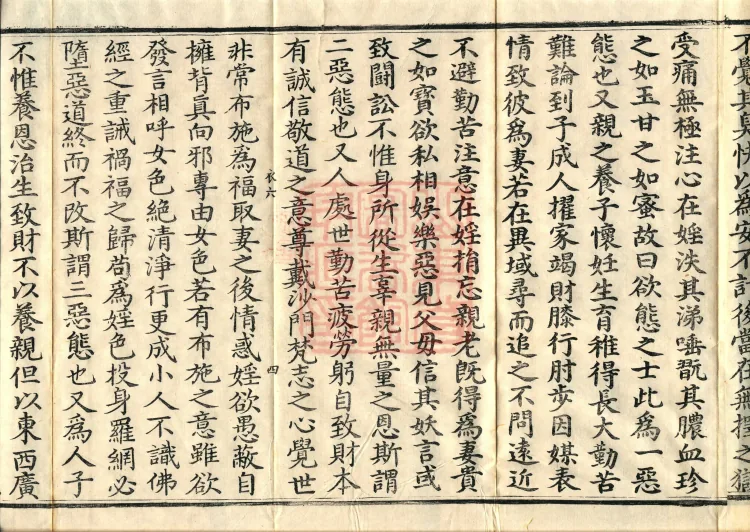 不覺其臭快以為安不計後當在無擇之獄
受痛無極注心在婬泆其涕唾翫其膿血珍
之如玉甘之如蜜故曰欲態之士此為一惡
態也又親之養子懷妊生育稚得長大勤苦
難論到子成人擢家竭財膝行肘步因媒表
情致彼為妻若在異域尋而追之不問遠近
不避勤苦注意在婬捐忘親老既得為妻貴
之如寶欲私相娛樂惡見父母信其妖言或
致鬪訟不惟身所從生辜親無量之恩斯謂
二惡態也又人處世勤苦疲勞躬自致財本
有誠信敬道之意尊戴沙門梵志之心覺世
衣六
四
非常布施為福取妻之後情惑婬欲愚蔽自
擁背真向邪專由女色若有布施之意雖欲
發言相呼女色絕清淨行更成小人不識佛
經之重誡禍福之歸苟為婬色投身羅網必
墮惡道終而不改斯謂三惡態也又為人子
不惟養恩治生致財不以養親但以東西廣